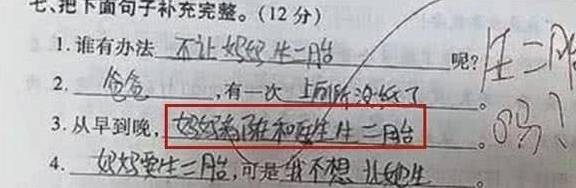 七、把下面句子补充完整。(12分)
1.谁有办法 不让妈妈生二胎 呢?
2. 爸爸 ,有一次 上厕所没纸了 。
3.从早到晚, 妈妈都在和医生生二胎 。
4. 妈妈要生二胎 ,可是 我不想让她生 。
生二胎
吗?